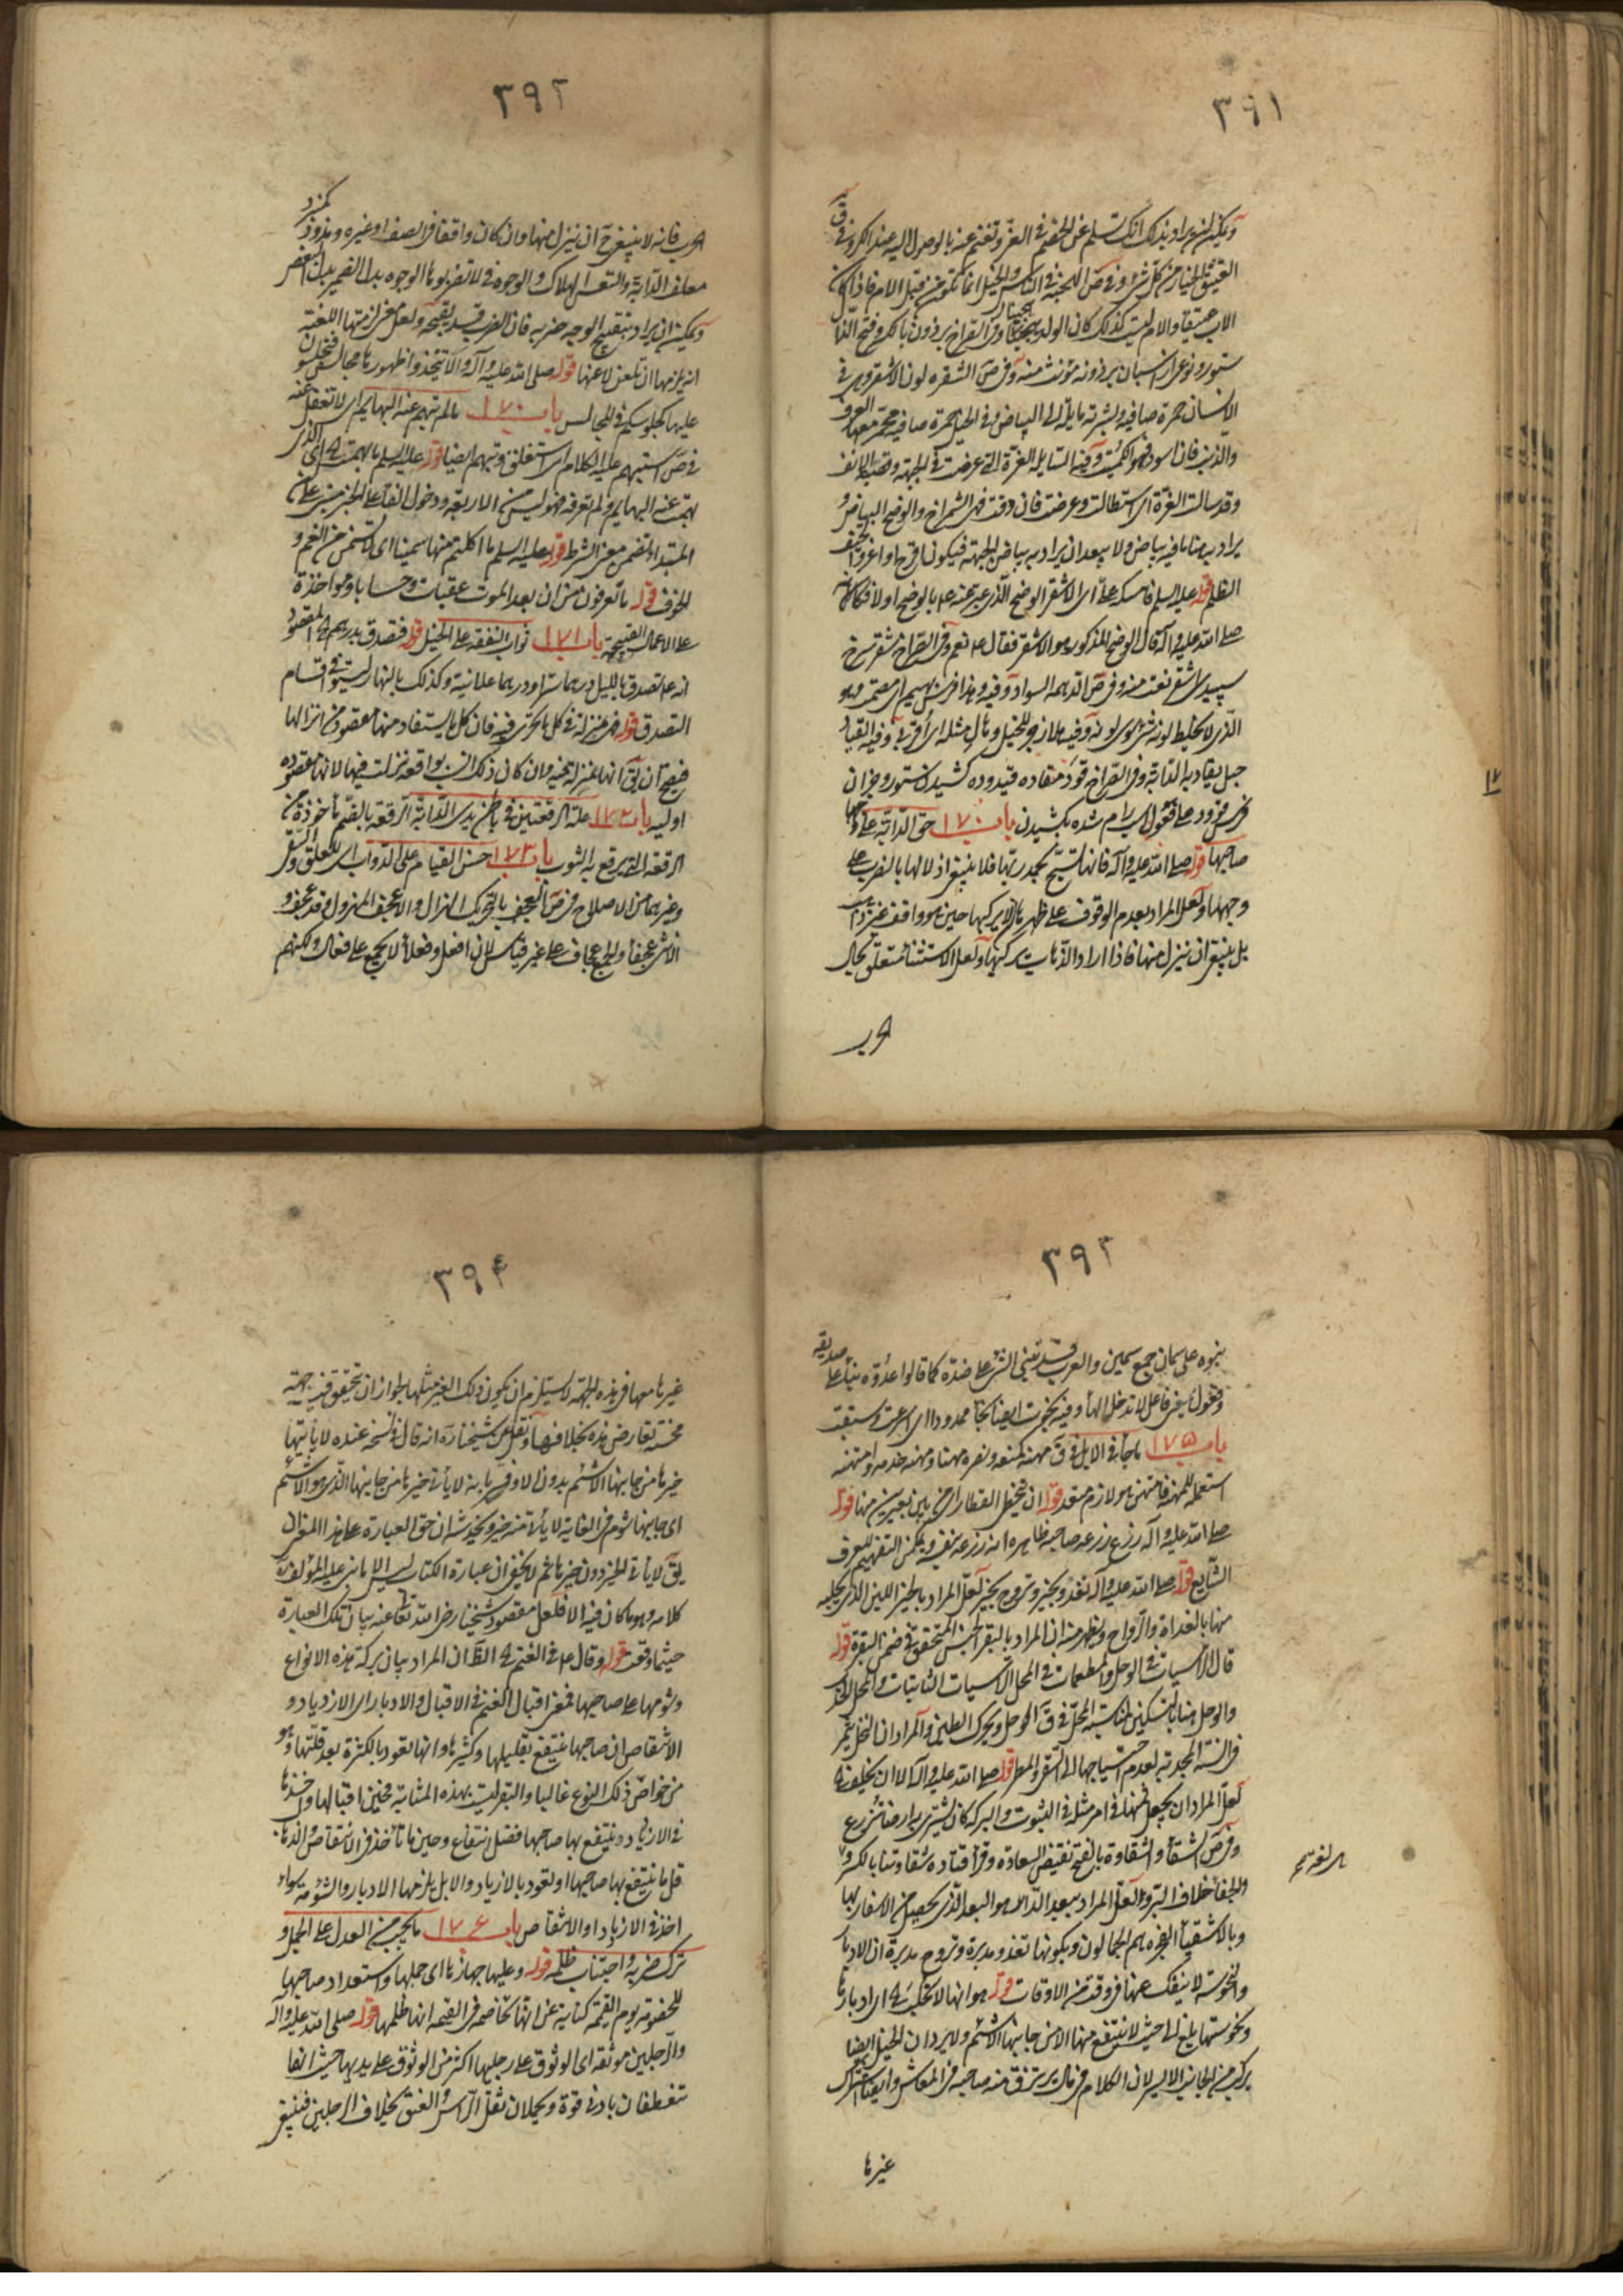 ٣٩١
ويمكن ان يراد بذلك انك تسلم عن الخصم في الغزو وتغنم عنه بالوصول اليه عند الكر وفي ق
العتيق الخيار من كل شئ وفي ص الهجنة في الناس والخيل انما تكون من قبل الام فاذا كان
الاب عتيقا والام ليست كذلك كان الولد هجينا وفي الصراح برذون بالكسر وفتح الذا
ستور ونوعى از اسبان برذونه مؤنث منه وفي ص الشقره لون الاشقر وهي في
الانسان حمرة صافيه وبشرته مايلة الى البياض وفي الخيل حمرة صافيه يحمر معها العرف
والذنب فان اسود فهو الكميت وفيه السايله الغرة التي عرضت في الجبهة وقصبة الانف
وقد سالت الغرة اى استطالت وعرضت فان دقت فهى الشمراخ والوضح البياض و
يراد به هنا ما فيه بياض ولا يبعد ان يراد به بياض الجبهة فيكون اقرح واغر
قوله عليه السلم فامسكه على اى الاشقر الوضح الذى عبر عنه بالوضح اولا فكانه
صلى الله عليه وآله قال الوضح المذكور هو الاشقر فقال ع نعم وفي الصراح شقر سرخ
سپيدى اشقر نعت منه وفي ص الدهمة السواد وفيه وهذا فرس بهيم اى مصمت وهو
الذى لا يخلط لونه شئ سوى لونه وفيه
حبل يقاد به الدابة وفي الصراح قود مقاده قيدوده كشيدن ستور وجز ان
فرس قؤود على فعول اسب رام شده بكشيدن باب ١٧٠ حق الدابة على
صاحبها قوله صلى الله عليه وآله فانها تسبح بحمد ربها فلا ينبغي اذلالها بالضرب على
وجهها ولعل المراد بعدم الوقوف على ظهرها ان لا يركبها حين هو واقف غير ذاهب
بل ينبغي ان ينزل منها فاذا اراد الذهاب يركبها ولعل الاستثنا متعلق بحال
الحرب
٣٩٢
الحرب فانه لا ينبغي ح ان ينزل منها وان كان واقفا في الصف او غيره
معلف الدابة والتعس الهلاك والوجوه في لا تضربوها الوجوه بدل الضمير بدل البعض
ويمكن ان يراد بتقبيح الوجه ضربه فان الضرب قد يقبحه ولعل معنى لزمتها اللعنة
انه يلزمها ان تلعن لاعنها قوله صلى الله عليه وآله ولا تتخذوا ظهورها مجالس فتجلسون
عليها كجلوسكم في المجالس باب ١٧٠ ما لم تبهم عنه البهايم اى لا تغفل عنه
في ص استبهم عليه الكلام اى استغلق وتبهم ايضا قوله عليه السلم ما بهمت ه اى الذى
بهمت عنه البهايم ولم تعرفه فهو ليس من الاربعة ودخول الفا على الخبر مبنى على ان
المبتدا تضمن معنى الشرط قوله عليه السلم ما اكلتم منها سمينا اى لم تسمن من الغم و
الخوف قوله ما تعرفون من ان بعد الموت عقبات وحسابا ومؤاخذة
على الاعمال القبيحة باب ١٧١ ثواب النفقة على الخيل قوله فتصدق بدرهم ه المقصود
انه ع تصدق بالليل درهما سرا ودرهما علانية وكذلك بالنهار ليستوفى اقسام
التصدق قوله فهى منزلة في كل ما يجرى فيه فان كل ما يستفاد منها مقصود من انزالها
فيصح ان يق انها منزلة فيه وان كان ذلك السبب واقعة نزلت فيها لانها مقصوده
اوليه باب ١٧٢ علة الرقعتين في باطن يدى الدابة الرقعة بالضم ماخوذة من
الرقعة التي يرقع به الثوب باب ١٧٣ حسن القيام على الدواب اى للعلق والسقى
وغيرهما من الاصلاح وفي ص العجف بالتحريك الهزال والاعجف المهزول وقد عجف و
الانثى عجفا والجمع عجاف على غير قياس لان افعل وفعلا لا يجمع على فعال ولكنهم
٣٩٣
بنوه على سمان جمع سمين والعرب قد تبنى الشئ على ضده كما قالوا عدوة بناء على صديقة
وفعول بمعنى فاعل لا تدخله الهاء وفيه نجوت ايضا نجاء ممدودا اى اسرعت وسبقت
باب ١٧٥ ما جاء في الابل في ق مهنه كمنعه ونصره مهنا ومهنة خدمه وامتهنه
استعمله للمهنة فامتهن هو لازم متعد قوله ان يتخطى القطار اى يمر بين بعيرين منها قوله
صلى الله عليه وآله زرع زرعه صاحبه ظاهره انه زرعه بنفسه ويمكن التعميم للعرف
الشايع قوله صلى الله عليه وآله تغدو بخير وتروح بخير لعل المراد بالخير اللبن الذى يحلبه
منها بالغداة والرواح ويظهر منه ان المراد بالبقر الجنس المتحقق في ضمن البقرة قوله
قال الراسيات في الوحل والمطعمات في المحل الراسيات الثابتات والمحل الجدب
والوحل هنا بالتسكين لمناسبة المحل في ق الوحل ويحرك الطين والمراد ان النخل يثمر
في السنة المجدبة لعدم احتياجها الى السقى والمطر قوله صلى الله عليه وآله الا ان يخلفها
لعل المراد ان يجعل ثمنها في امر مثله في الثبوت والبركة كان يشترى به ارضا تزرع
وفي ص الشقاء والشقاوة بالفتح نقيض السعادة وقرأ قتاده شقاوتنا بالكسر و
والجفا خلاف البر ولعل المراد ببعد الدار هو البعد الذى يحصل من الاسفار بها
وبالاشقيا الفجره هم الجمالون وبكونها تغدو مدبرة وتروح مدبرة ان الادبار
والنحوسة لا ينفك عنها في وقت من الاوقات قوله هو انها لا تحلب ه اى ادبارها
ونحوستها بلغ الى حيث لا ينتفع منها الا من جانبها الاشئم ولا يرد ان الخيل ايضا
يركب من الجانب الايسر لان الكلام في مال يرتزق منه صاحبه في المعاش وايضا اشتراك
غيرها
٣٩٤
غيرها معها في هذه الجهة لا يستلزم ان يكون ذلك الغير مثلها لجواز ان تحقق فيه جهة
محسنة تعارض هذه بخلافها ونقل عن شيخنا ره انه قال في نسخة عنده لا ياتيها
خيرها من جانبها الاشئم بدون الا وفسر بانه لا ياتى خيرها من جانبها الذى هو الاشئم
اى جانبها شوم في الغاية لا ياتى منه خير ويخدشه ان حق العبارة على هذا المنوال
يق لا ياتى الخير دون خيرها ثم لا يخفى ان عبارة الكتاب ليس الا ما بنى عليه المؤلف
كلامه وهو ما كان فيه الا فلعل مقصود شيخنا رضى الله تعالى عنه بيان تلك العبارة
حيثما وقعت قوله وقال ع في الغنم ه الظ ان المراد بيان بركة هذه الانواع
وشومها على صاحبها فمعنى اقبال الغنم في الاقبال والادبار اى الازدياد و
الانتقاص ان صاحبها ينتفع بقليلها وكثيرها وانها تعود بالكثرة بعد قلتها وهو
من خواص ذلك النوع غالبا والبقر ليست بهذه المثابة فحين اقبالها واخذها
في الازدياد ينتفع بها صاحبها فضل انتفاع وحين ما تاخذ في الانتقاص والذهاب
قل ما ينتفع بها صاحبها او تعود بالازدياد والابل يلزمها الادبار والشومه سواء
اخذ في الازدياد او الانتقاص باب ١٧٦ ما يجب من العدل على الجمل و
ترك ضربه واجتناب ظلمه قوله وعليها جهازها اى حملها واستعداد صاحبها
للخصومة يوم القيمة كناية عن انها تخاصمه في القيمة انها ظلمها قوله صلى الله عليه وآله
والرجلين موثقه اى الوثوق على رجليها اكثر من الوثوق على يديها حيث انها
تنعطفان بادنى قوة ويحملان ثقل الراس والعنق بخلاف الرجلين فينبغى